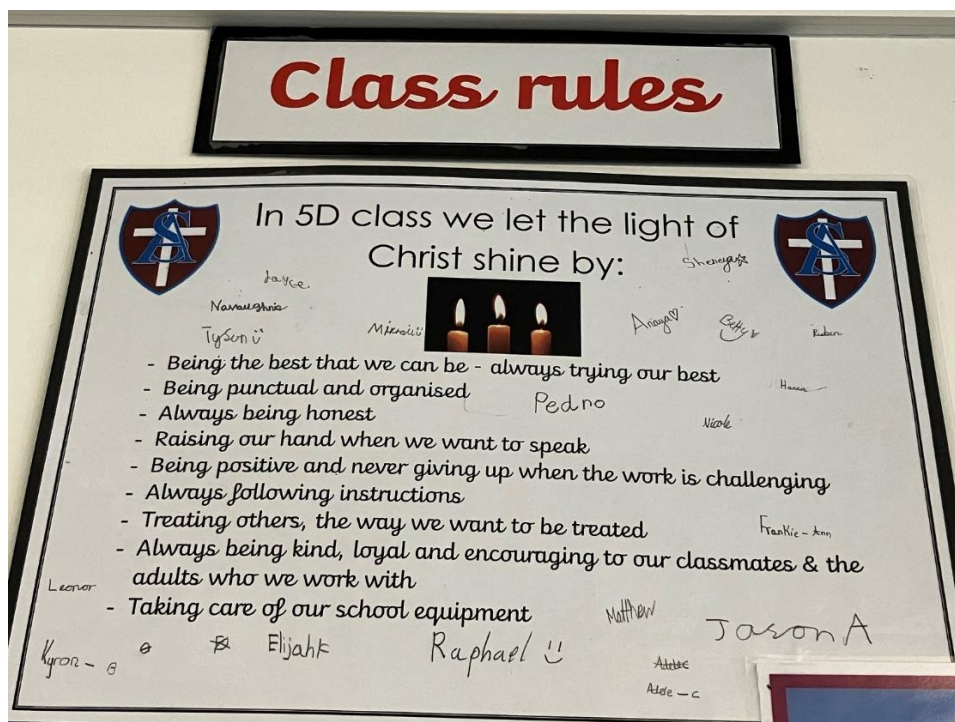 Class rules
In 5D class we let the light of
Christ shine by:
Sheneya
Jayce
Navaughnie
Tyson
Anaya
Betty
Ruben
- Being the best that we can be - always trying our best
- Being punctual and organised
Pedro
- Always being honest
Nicole
- Raising our hand when we want to speak
- Being positive and never giving up when the work is challenging
- Always following instructions
- Treating others, the way we want to be treated
Frankie-Ann
- Always being kind, loyal and encouraging to our classmates & the
adults who we work with
Leonor
- Taking care of our school equipment
Matthew
Jason A
Kyron -
Elijah K
Raphael
Adele - C